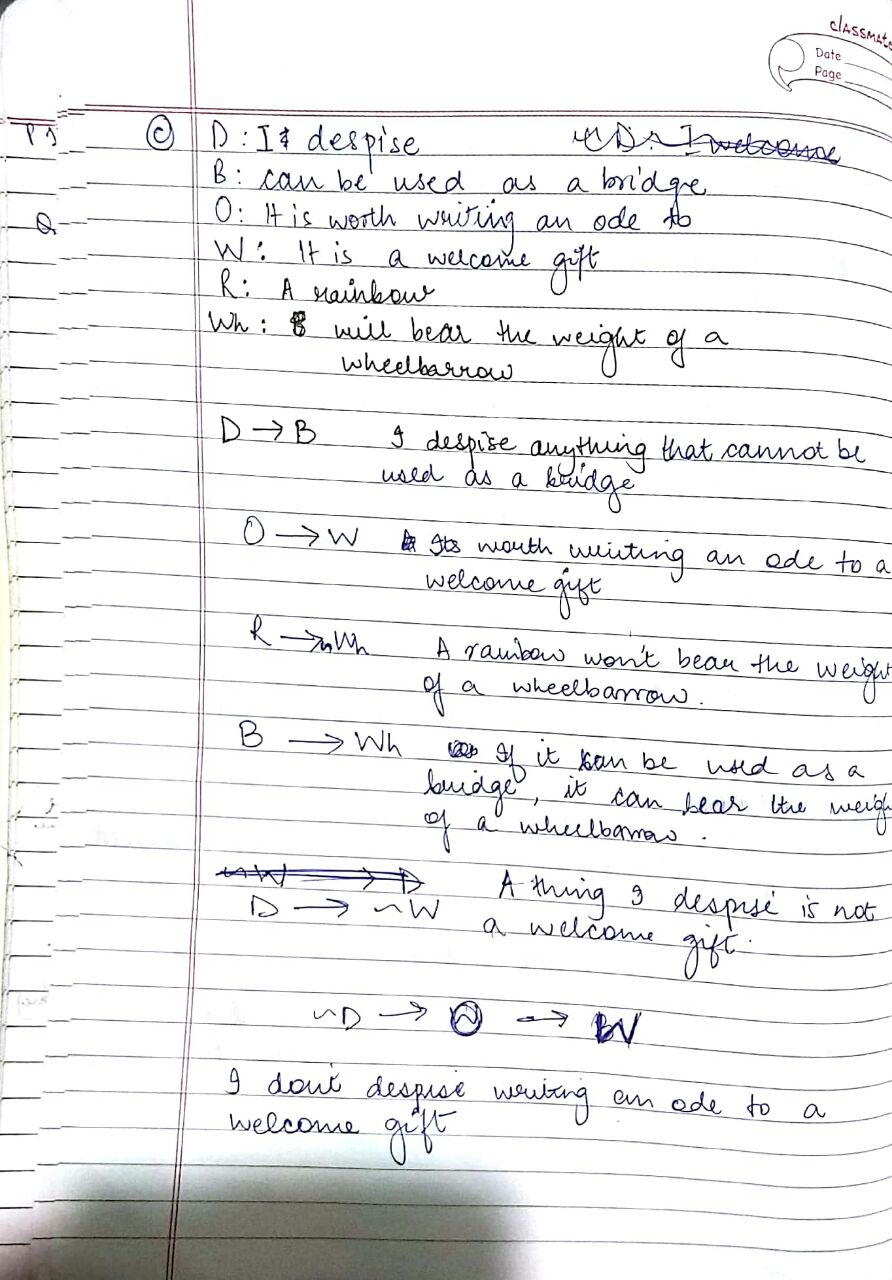 classmate
Date
Page
© D : I despise
B : can be used as a bridge
O : It is worth writing an ode to
W : It is a welcome gift
R : A rainbow
Wh : will bear the weight of a
wheelbarrow
D → B I despise anything that cannot be
used as a bridge
O → W Its worth writing an ode to a
welcome gift
R → ~Wh A rainbow won't bear the weight
of a wheelbarrow.
B → Wh If it can be used as a
bridge, it can bear the weigh
of a wheelbarrow.
~W → D A thing I despise is not
D → ~W a welcome gift.
~D → W →
I don't despise writing an ode to a
welcome gift